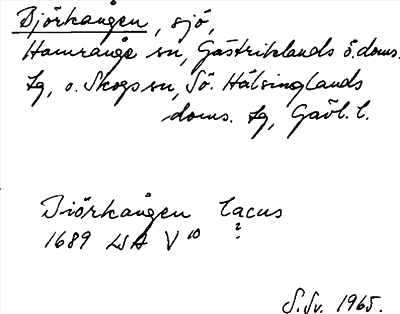 Björkången, sjö,
Hamrånge sn, Gästriklands ö. doms.
tg, o. Skogs sn, Sö. Hälsinglands
doms. tg, Gävl. l.
Biörkången lacus
1689 LSA V 10 ?
S. Sv. 1965.